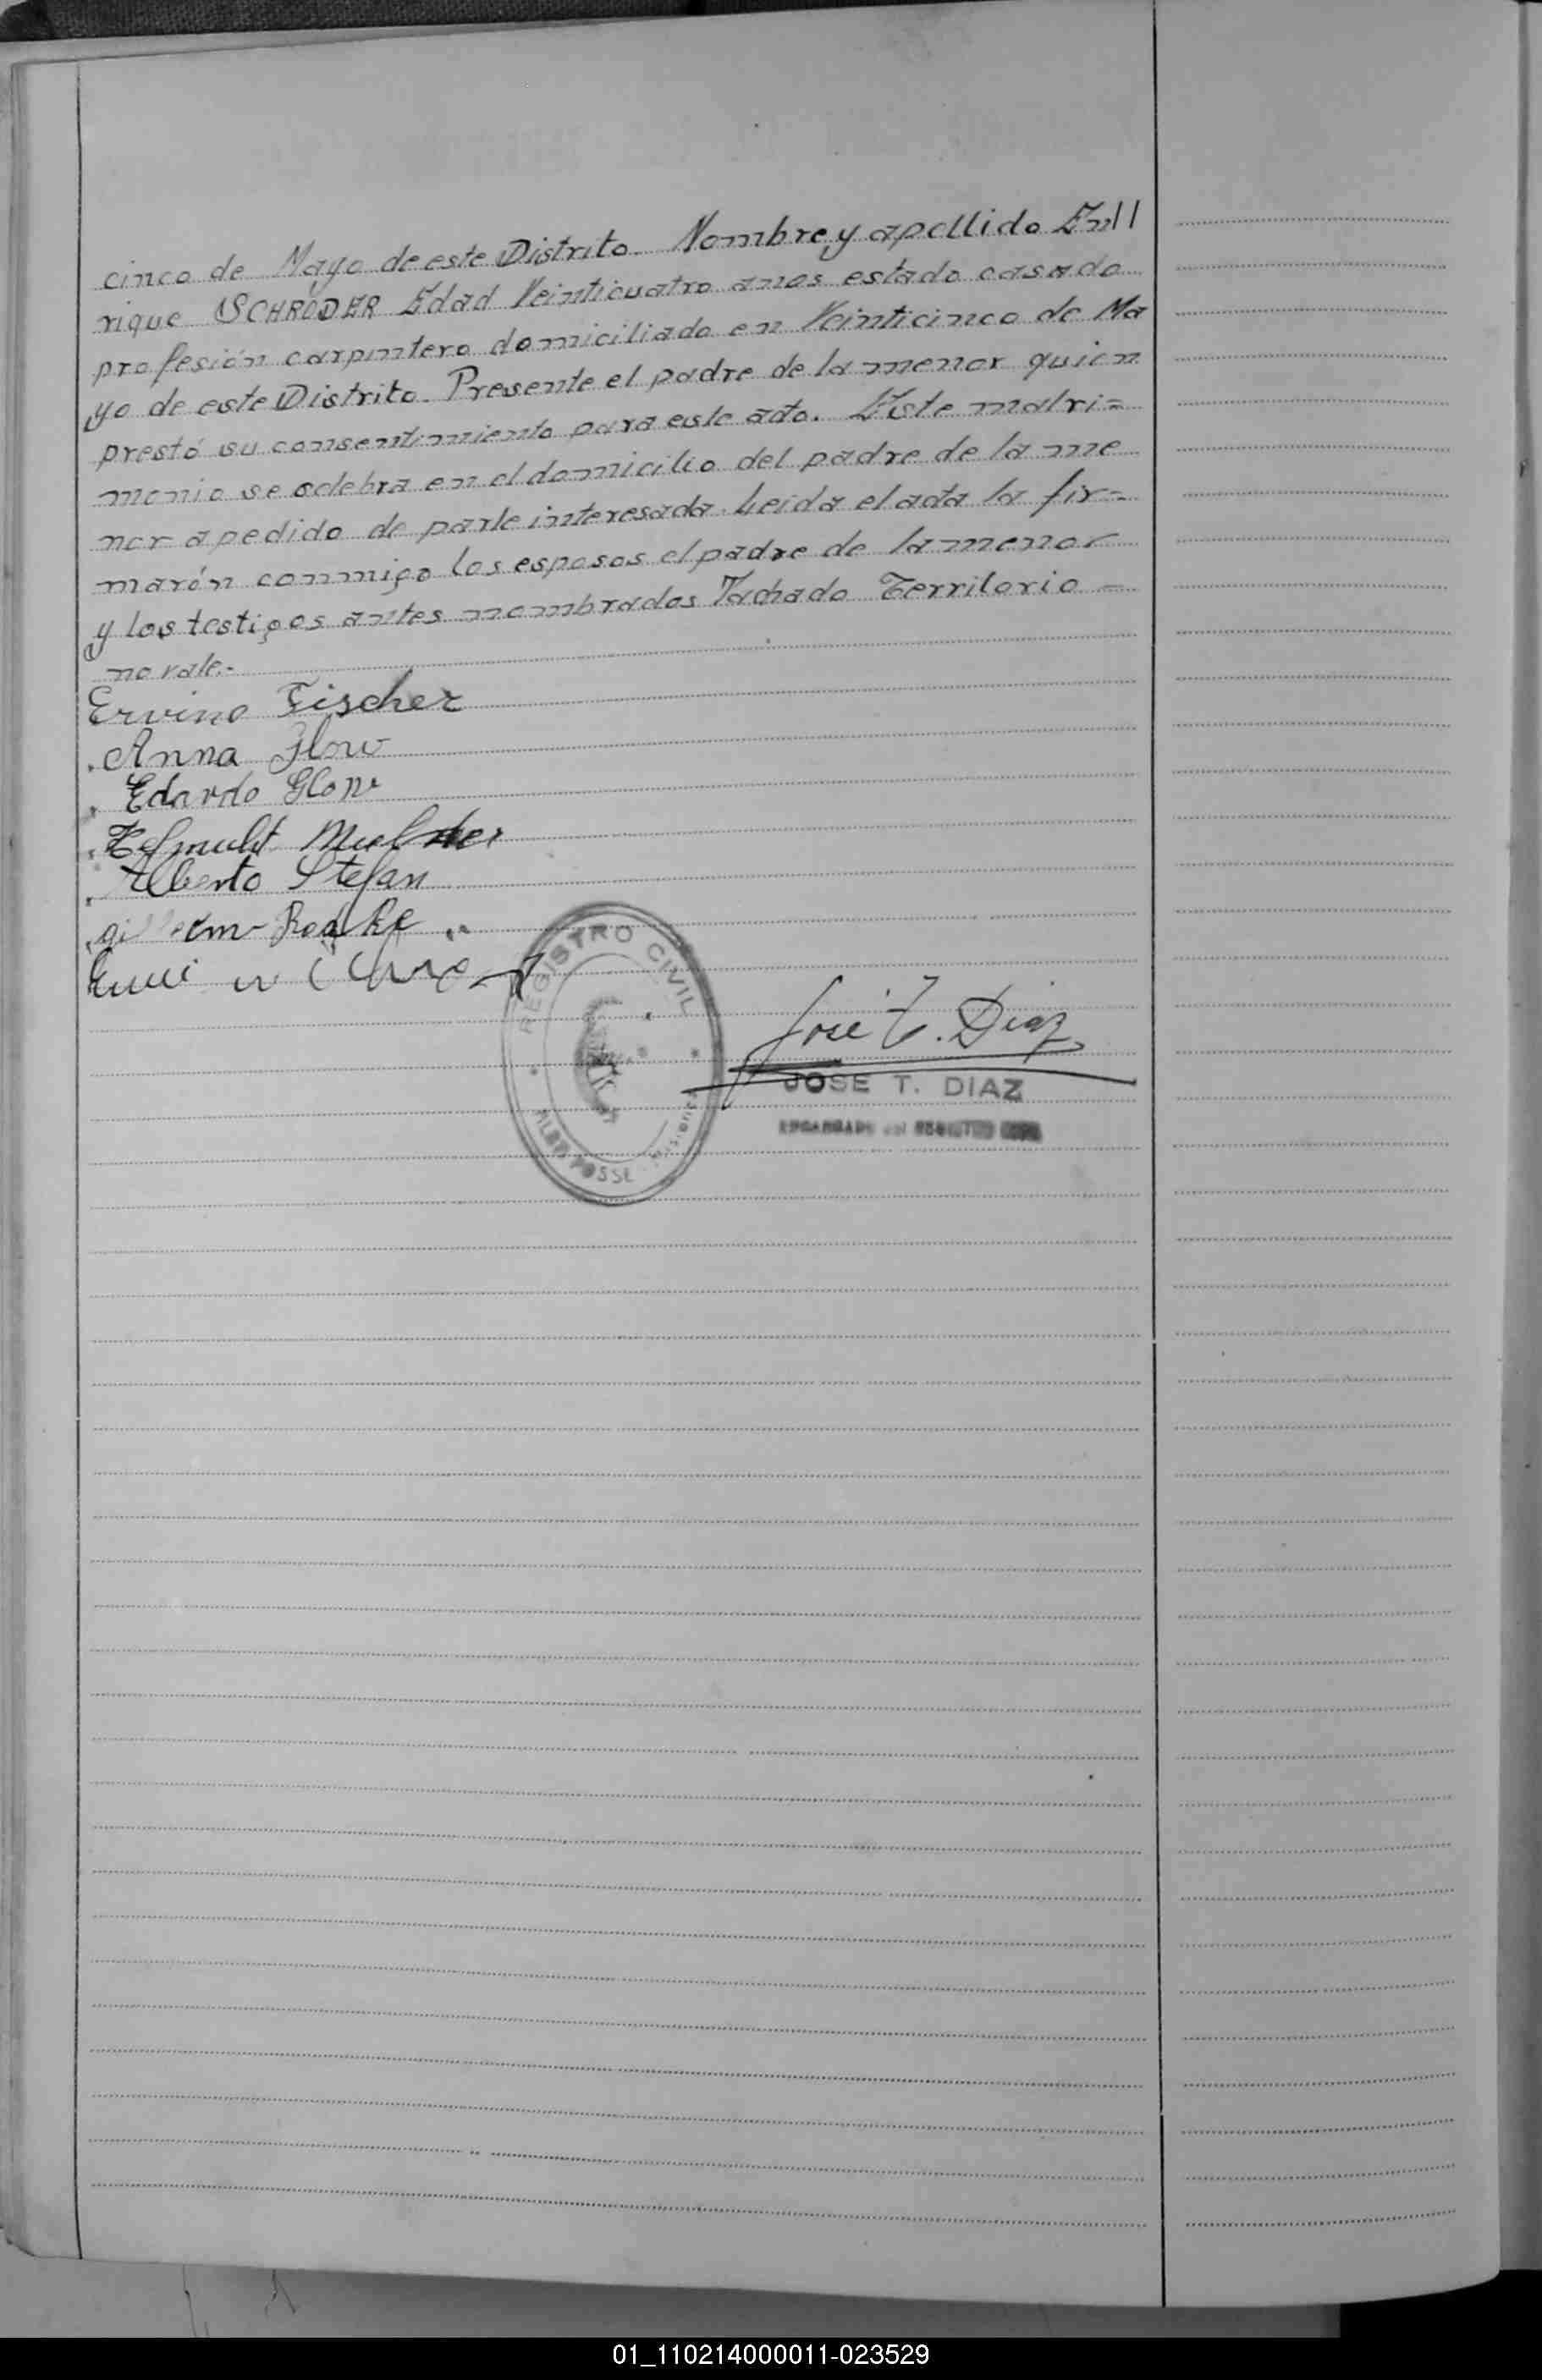 cinco de Mayo de este Distrito. Nombre y apellido En||
rique SCHRÖDER Edad Veinticuatro anos estado casado
profesión carpintero domiciliado en Veinticinco de Ma
yo de este Distrito. Presente el padre de la menor quien
prestó su consentimiento para este acto. Este matri=
monio se celebra en el domicilio del padre de la me
nor a pedido de parte interesada. Leida el acta la fir=
marón conmigo los esposos el padre de la menor
y los testigos antes nombrados Tachado Territorio =
no vale.-
Ervino Fischer
Anna Glow
Edardo Glow
Helmuht
Alberto Stefan
REGISTRO CIVIL
José T. Diaz
JOSE T. DIAZ
ENCARGADO del REGISTRO CIVIL
ALBA POSSE Misiones
01_110214000011-023529